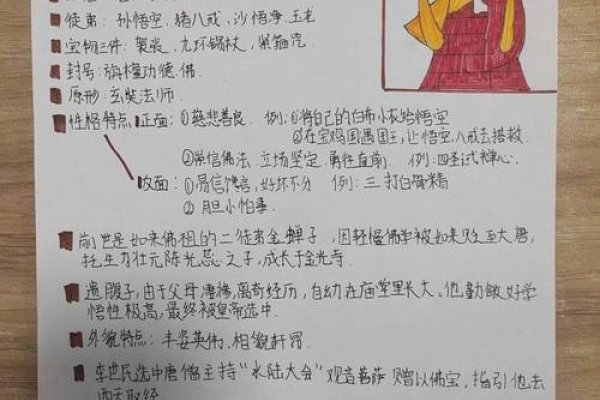 徒弟: 孙悟空, 猪八戒, 沙悟净, 玉龙
宝物三件: 袈裟, 九环锡杖, 紧箍咒
封号: 旃檀功德佛
原形: 玄奘法师
性格特点 正面: ①慈悲善良 例: ①将自己的白布小衣给悟空
②在宝鸡国遇国王, 让悟空, 八戒去搭救
②笃信佛法, 立场坚定, 勇往直前 例: 四圣试禅心.
反面: ①易信馋言, 好坏不分 例: 三打白骨精
② 胆小怕事.
前世是如来佛祖的二徒弟金蝉子, 因轻慢佛学被如来贬至大唐,
托生为状元陈光蕊之子, 成长于金光寺.
遗腹子, 由于父母凄惨, 离奇经历, 自幼在庙堂里长大. 他勤敏好学
悟性极高, 最终被皇帝选中.
外貌特点: 丰姿英伟, 相貌轩昂.
李世民选中唐僧主持“水陆大会” 观音菩萨 赠以佛宝, 指引他去
西天取经